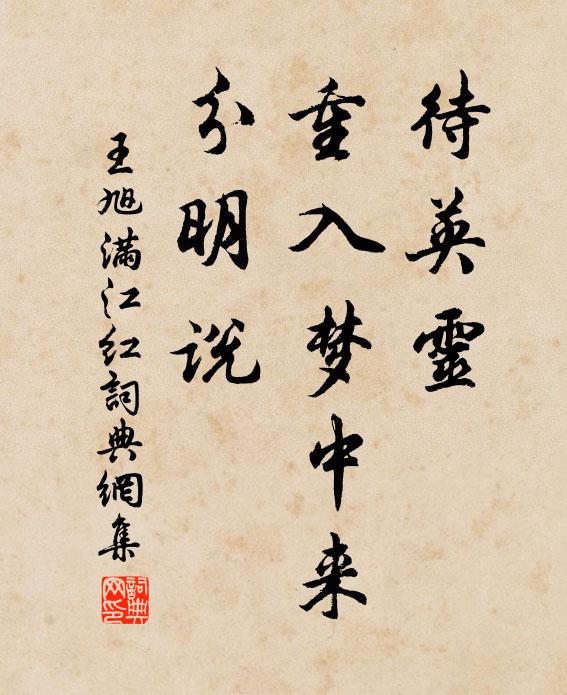 待英靈
重入梦中来
分明说
王旭满江红詞典網集
詞典网印